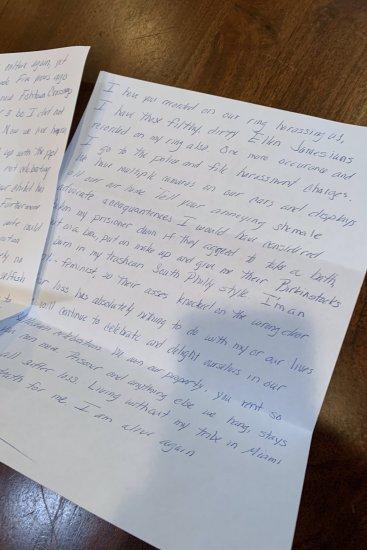 again, yet
Five years ago
new Fishtown Crossing
so I did not
Now we live
up with the ppl
not celebrating
child has
Furthermore
could
no
selfish
to
I have you recorded on our ring harassing us,
I have those filthy, dirty Ellen Jamesians
recorded on my ring also. One more occurance and
I go to the police and file harassment charges.
have multiple cameras on our cars and displays
all our our home. Tell your annoying shemale
advocate acquaintances I would have considered
my prisoner down if they agreed to take a bath,
put on a bra, put on make up and give me their Birkenstocks
burn in my trashcan South Philly style. I'm an
- feminist, so their asses knocked on the wrong door
loss has absolutely nothing to do with my or our lives
will continue to celebrate and delight ourselves in our
celebration. We own our property, you rent so
own Prisoner and anything else we hang, stays
all after loss. Living without my tribe in Miami
death for me. I am alive again